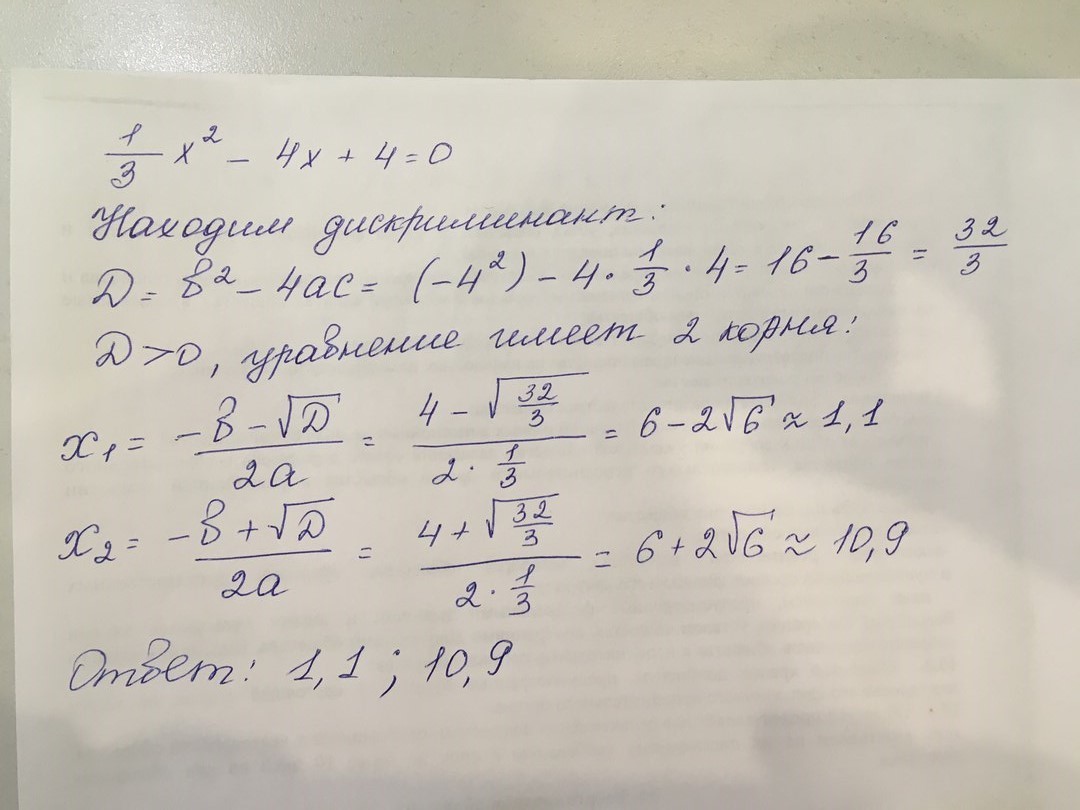 1/3 x² - 4x + 4 = 0
Находим дискриминант:
D = b² - 4ac = (-4²) - 4 · 1/3 · 4 = 16 - 16/3 = 32/3
D > 0, уравнение имеет 2 корня:
x₁ = (-b - √D)/(2a) = (4 - √(32/3))/(2 · 1/3) = 6 - 2√6 ≈ 1,1
x₂ = (-b + √D)/(2a) = (4 + √(32/3))/(2 · 1/3) = 6 + 2√6 ≈ 10,9
Ответ: 1,1 ; 10,9